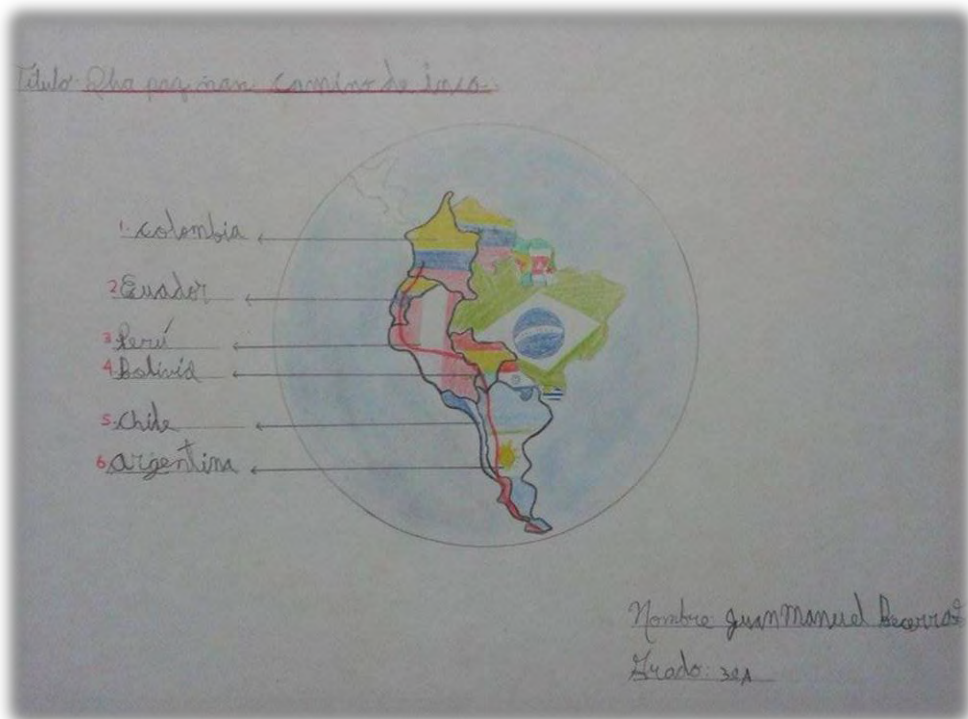 Titulo: Qha paq ñan camino de inca.
1. Colombia
2 Ecuador
3. Perú
4. Bolivia
5. Chile
6. Argentina
Nombre Juan Manuel Becerra
Grado: 3eA